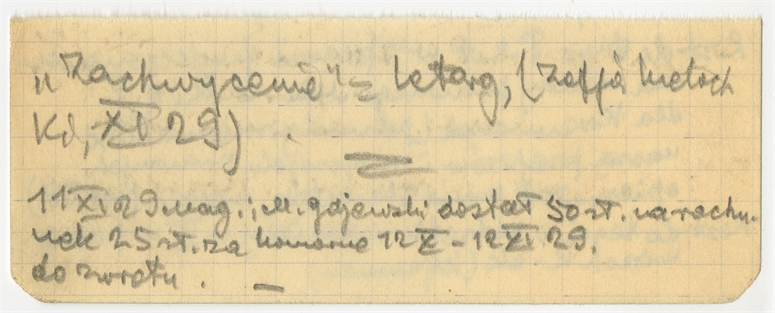 „Zachwycenie" = letarg, (Zoffja Metoch
Kd, XI 29) .
11 XI 29 mag. i M. Gajewski dostał 50 zł. na rachu-
nek 25 zł. za komorne 12 X – 12 XI 29.
do zwrotu . –